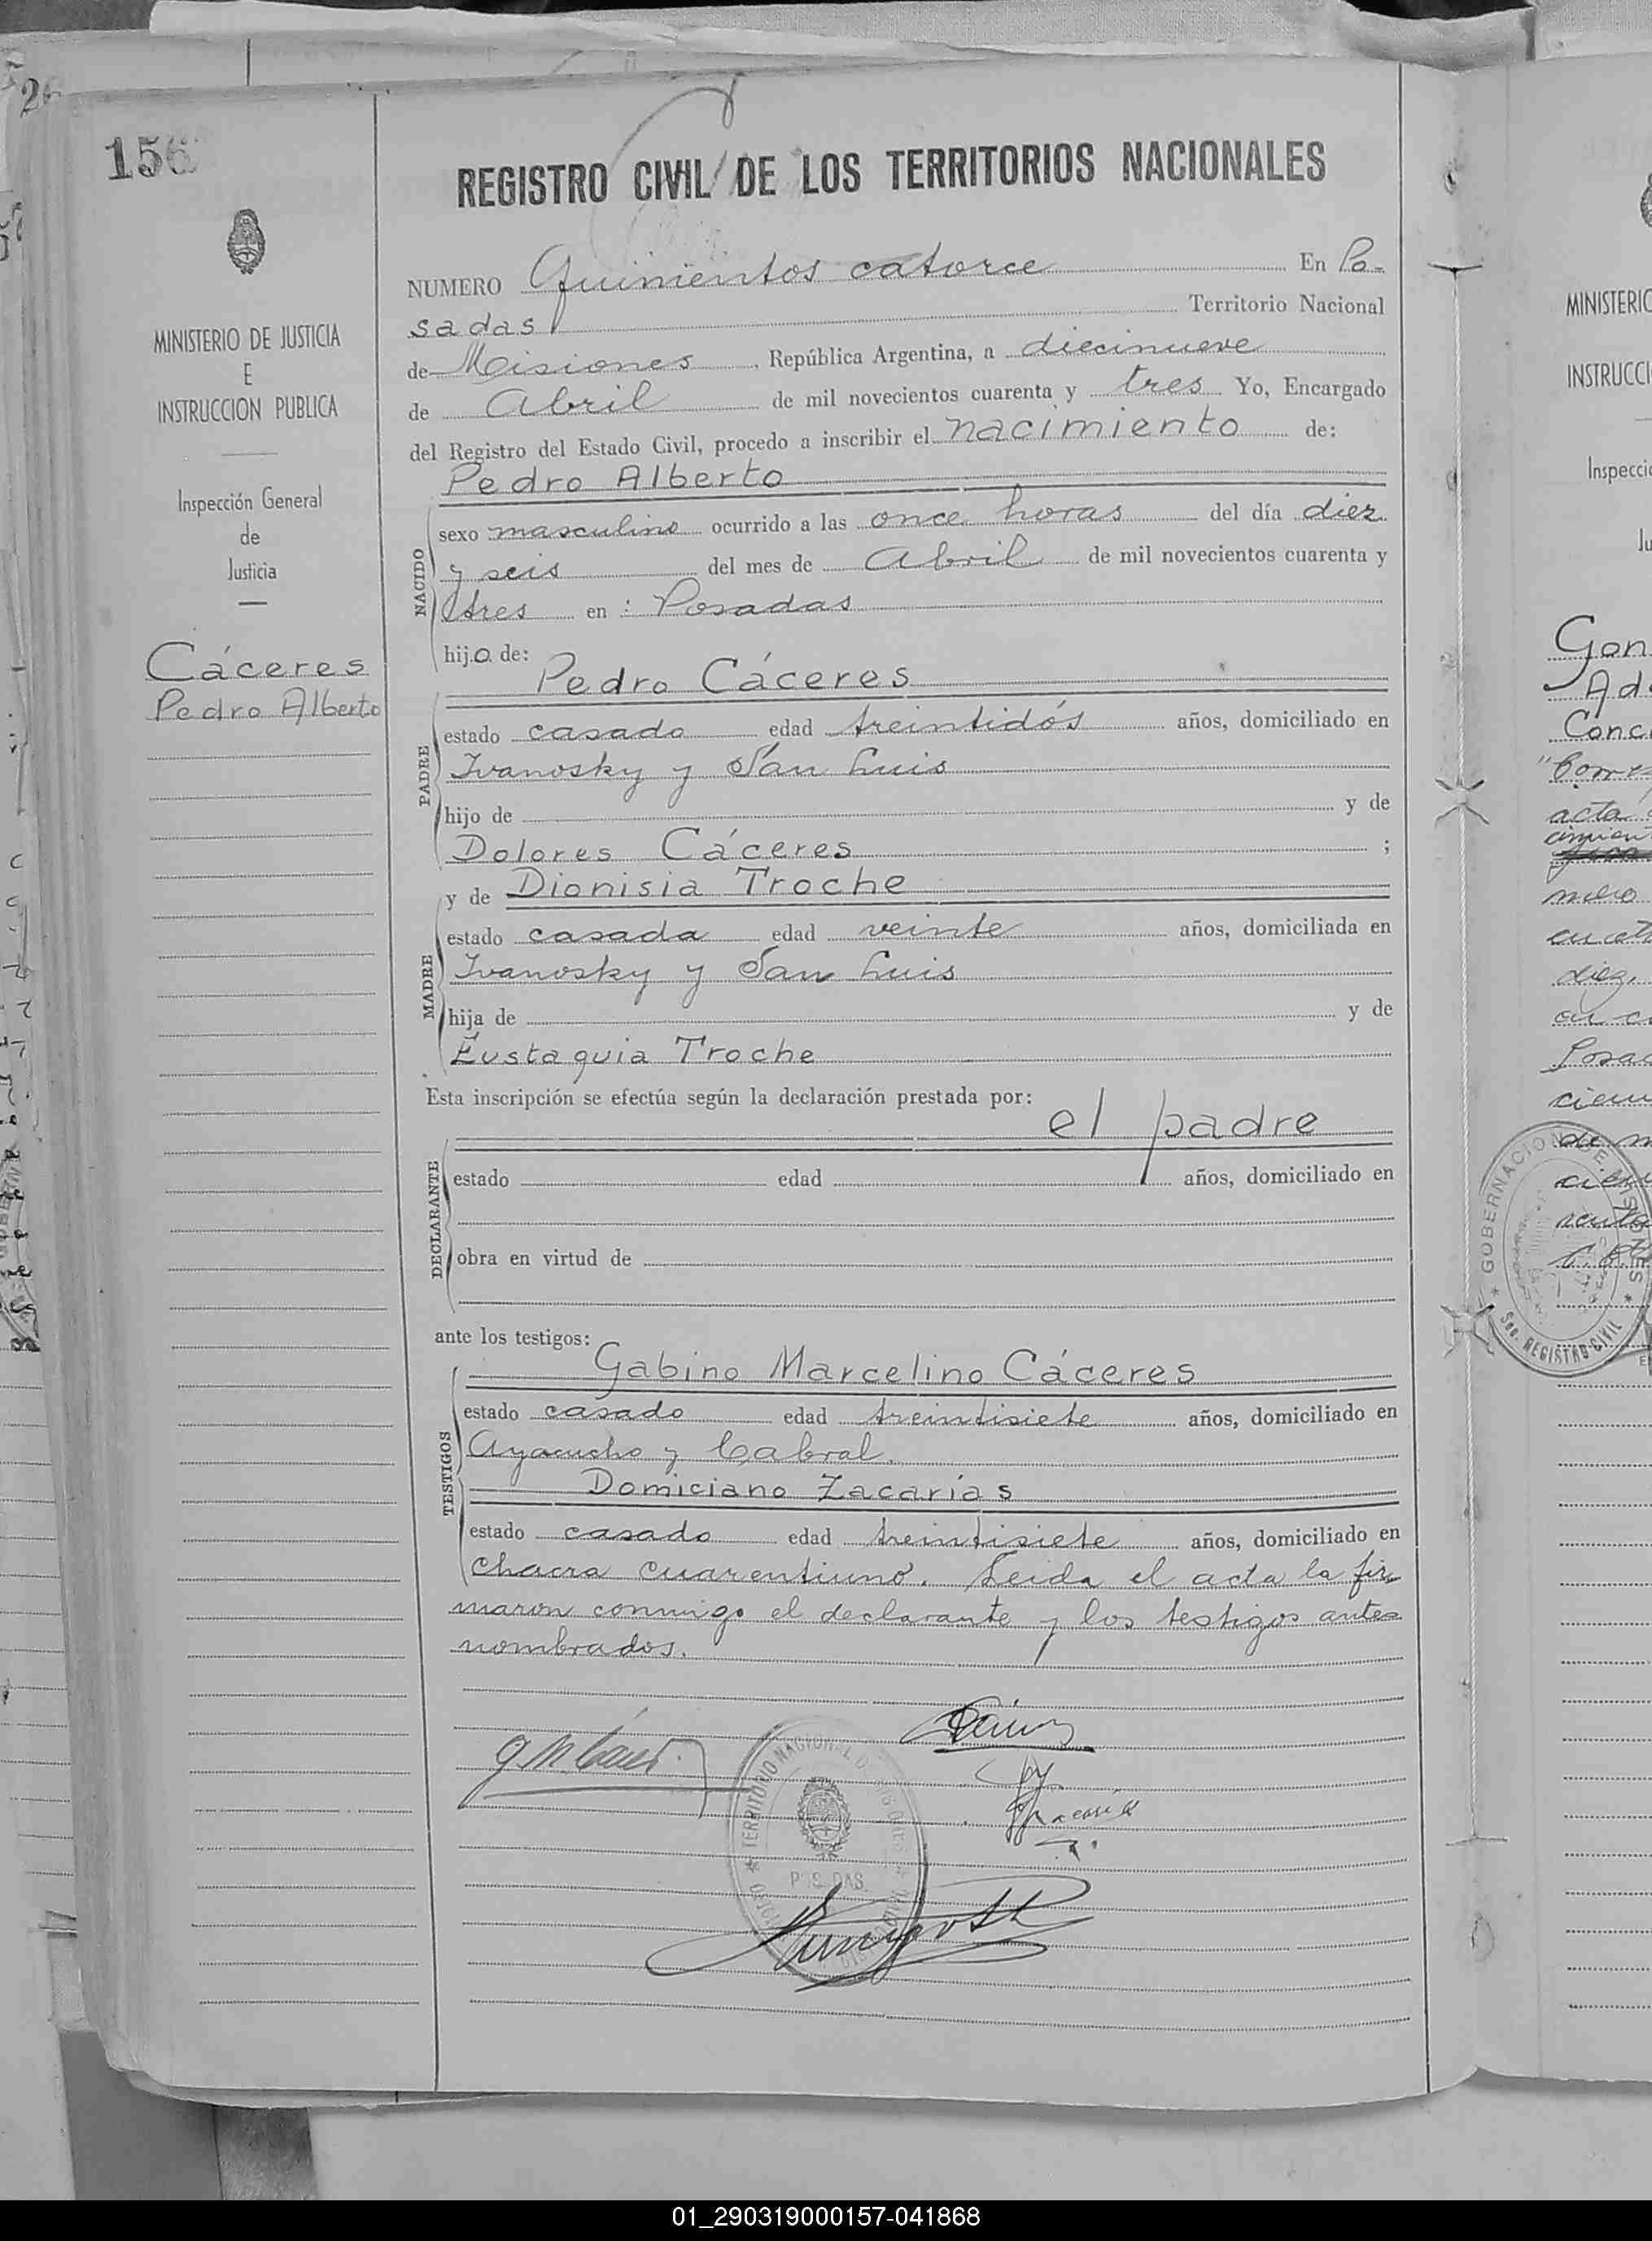 156
REGISTRO CIVIL DE LOS TERRITORIOS NACIONALES
MINISTERIO DE JUSTICIA
E
INSTRUCCION PUBLICA
Inspección General
de
Justicia
Cáceres
Pedro Alberto
NUMERO Quinientos catorce En Po-
sadas Territorio Nacional
de Misiones, República Argentina, a diecinueve
de Abril de mil novecientos cuarenta y tres Yo, Encargado
del Registro del Estado Civil, procedo a inscribir el nacimiento de:
Pedro Alberto
NACIDO
sexo masculino ocurrido a las once horas del día diez
y seis del mes de Abril de mil novecientos cuarenta y
tres en : Posadas
hijo de:
Pedro Cáceres
PADRE
estado casado edad treintidós años, domiciliado en
Ivanosky y San Luis
hijo de y de
Dolores Cáceres ;
y de Dionisia Troche
MADRE
estado casada edad veinte años, domiciliada en
Ivanosky y San Luis
hija de y de
Eustaquia Troche
Esta inscripción se efectúa según la declaración prestada por:
el padre
DECLARANTE
estado edad años, domiciliado en
obra en virtud de
ante los testigos:
Gabino Marcelino Cáceres
TESTIGOS
estado casado edad treintisiete años, domiciliado en
Ayacucho y Cabral.
Domiciano Zacarías
estado casado edad treintisiete años, domiciliado en
chacra cuarentiuno. Leida el acta la fir
maron conmigo el declarante y los testigos antes
nombrados.
TERRITORIO NACIONAL DE MISIONES
POSADAS
MINISTERIO
INSTRUCCI
Inspecci
Ju
Gon
Ad
Conc
acta
diez,
Posad
GOBERNACION DE MISIONES
Sec. REGISTRO CIVIL
01_290319000157-041868